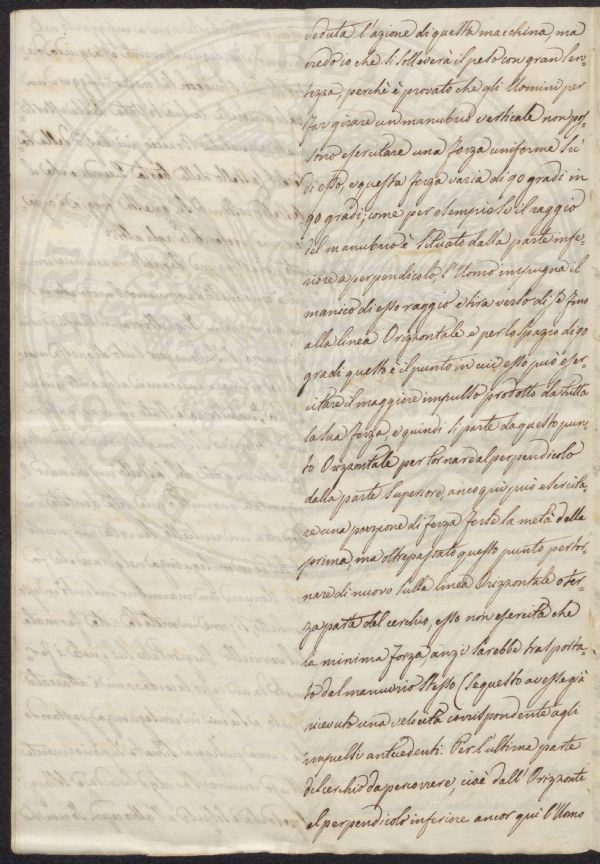 veduta l'azione di questa macchina, ma
credo io che si solleverà il peso con gran len-
tezza, perchè è provato che gli Uomini per
far girare un manubrio verticale non pos-
sono esercitare una forza uniforme su
di esso, e questa forza varia di 90 gradi in
90 gradi; come per esempio se il raggio
del manubrio è situato dalla parte infe-
riore a perpendicolo, l'Uomo impugna il
manico di esso raggio e tira verso di se fino
alla linea Orizzontale e per lo spazio di 90
gradi questo è il punto in cui esso può eser-
citare il maggiore impulso prodotto da tutta
la sua forza, e quindi si parte da questo pun-
to Orizzontale per tornare al perpendicolo
dalla parte superiore, anco qui può esercita-
re una porzione di forza forse la metà della
prima, ma oltrepassato questo punto per tor-
nare di nuovo sulla linea orizzontale o ter-
za parte del cerchio, esso non esercita che
la minima forza, anzi sarebbe trasporta-
to del manubrio stesso (se questo avesse già
ricevuto una velocità corrispondente agli
impulsi antecedenti. Per l'ultima parte
del cerchio da percorrere, cioè dall'Orizzonte
al perpendicolo inferiore ancor qui l'Uomo